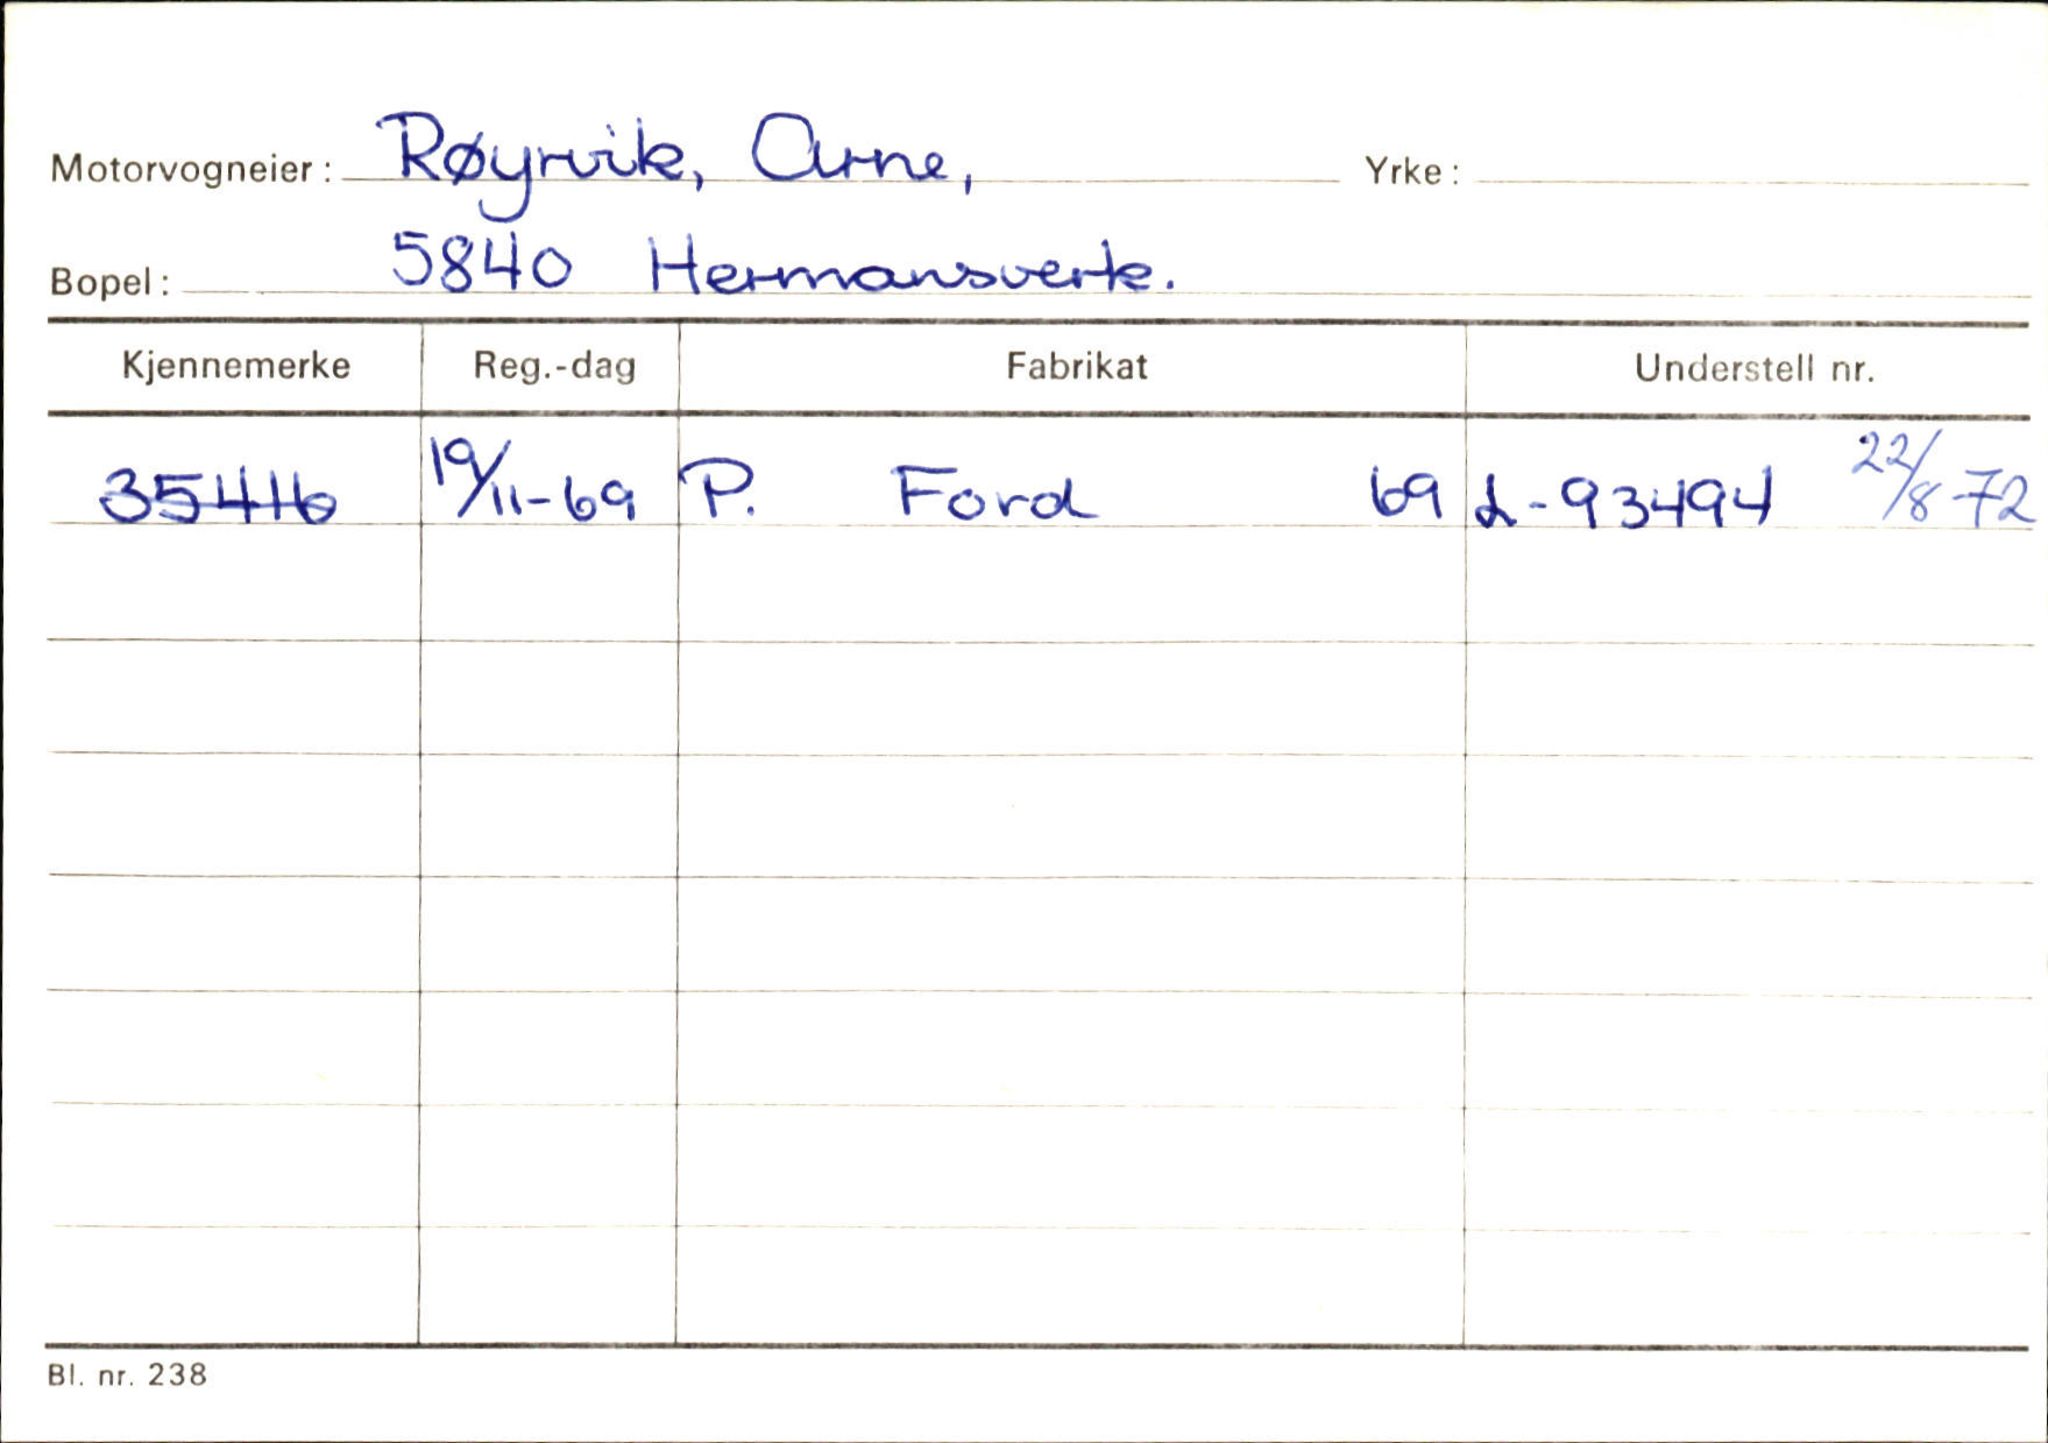 Motorvogneier: Røyrvik, Arne, Yrke:
Bopel: 5840 Hermansverk.
Kjennemerke Reg.-dag Fabrikat Understell nr.
35416 19/11-69 P. Ford 69 L-93494 22/8-72
Bl. nr. 238